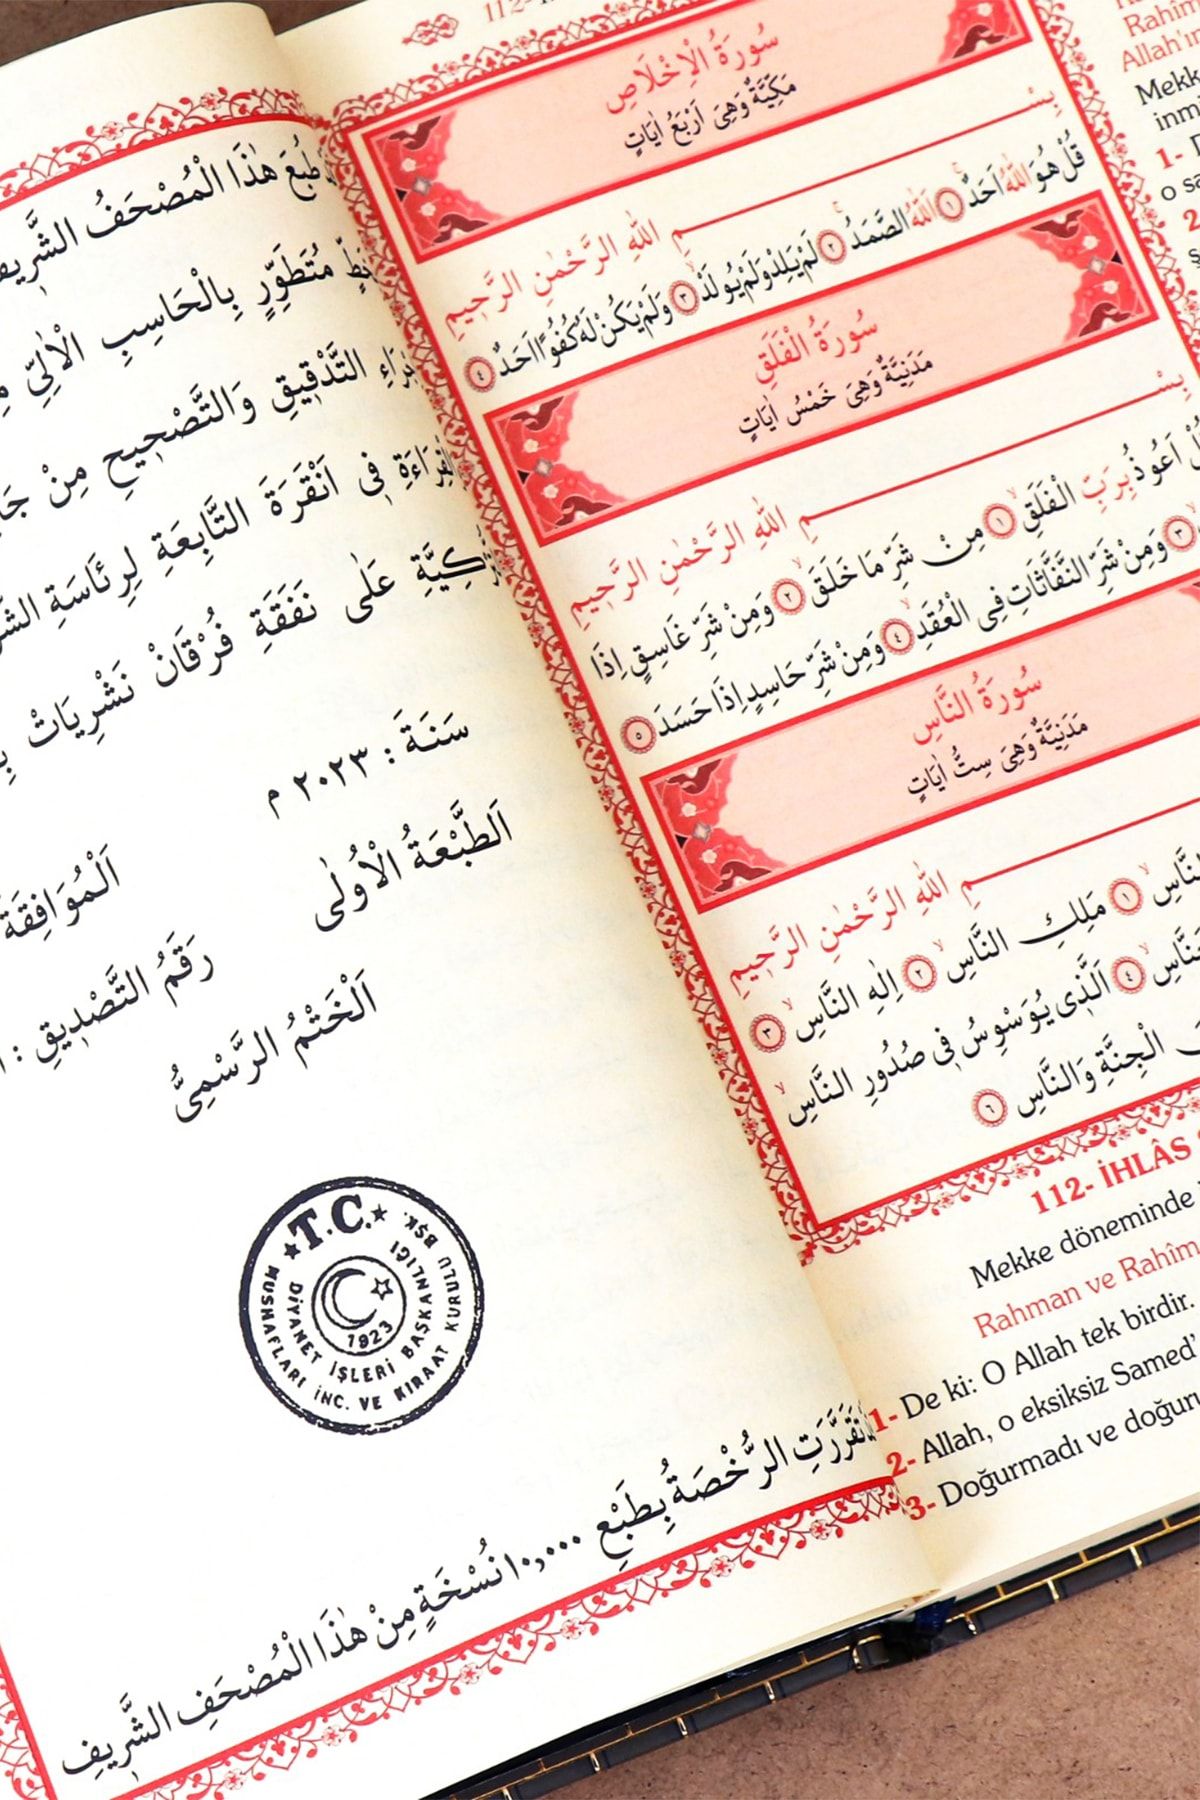 طُبِعَ هٰذَا الْمُصْحَفُ الشَّرِيفُ
مُتَطَوِّرٍ بِالْحَاسِبِ الْاٰلِيِّ
التَّدْقِيقِ وَالتَّصْحِيحِ مِنْ
فِى اَنْقَرَةَ التَّابِعَةِ لِرِئَاسَةِ
عَلٰى نَفَقَةِ فُرْقَانْ نَشْرِيَاتْ
سَنَةَ : ٢٠٢٣ م
اَلطَّبْعَةُ الْاُولٰى
اَلْمُوَافِقَةَ
رَقَمُ التَّصْدِيقِ :
اَلْخَتْمُ الرَّسْمِىُّ
T.C.
MUSHAFLARI İNC. VE KIRAAT KURULU BŞK.
DİYANET İŞLERİ BAŞKANLIĞI
1923
تَقَرَّرَتِ الرُّخْصَةُ بِطَبْعِ ١٠,٠٠٠ نُسْخَةٍ مِنْ هٰذَا الْمُصْحَفِ الشَّرِيفِ
112-
سُورَةُ الْاِخْلَاصِ
مَكِّيَّةٌ وَهِىَ اَرْبَعُ اٰيَاتٍ
بِسْمِ اللّٰهِ الرَّحْمٰنِ الرَّحِيمِ
قُلْ هُوَ اللّٰهُ اَحَدٌ ١ اَللّٰهُ الصَّمَدُ ٢ لَمْ يَلِدْ وَلَمْ يُولَدْ ٣ وَلَمْ يَكُنْ لَهُ كُفُوًا اَحَدٌ ٤
سُورَةُ الْفَلَقِ
مَدَنِيَّةٌ وَهِىَ خَمْسُ اٰيَاتٍ
بِسْمِ اللّٰهِ الرَّحْمٰنِ الرَّحِيمِ
اَعُوذُ بِرَبِّ الْفَلَقِ ١ مِنْ شَرِّ مَا خَلَقَ ٢ وَمِنْ شَرِّ غَاسِقٍ اِذَا
٣ وَمِنْ شَرِّ النَّفَّاثَاتِ فِى الْعُقَدِ ٤ وَمِنْ شَرِّ حَاسِدٍ اِذَا حَسَدَ ٥
سُورَةُ النَّاسِ
مَدَنِيَّةٌ وَهِىَ سِتُّ اٰيَاتٍ
مِ اللّٰهِ الرَّحْمٰنِ الرَّحِيمِ
النَّاسِ ١ مَلِكِ النَّاسِ ٢ اِلٰهِ النَّاسِ ٣
٤ اَلَّذِى يُوَسْوِسُ فِى صُدُورِ النَّاسِ
الْجِنَّةِ وَالنَّاسِ ٦
112- İHLÂS
Mekke döneminde
Rahman ve Rahîm
1- De ki: O Allah tek birdir.
2- Allah, o eksiksiz Samed'
3- Doğurmadı ve
Rahîm
Allah'ın
1-
o
2-